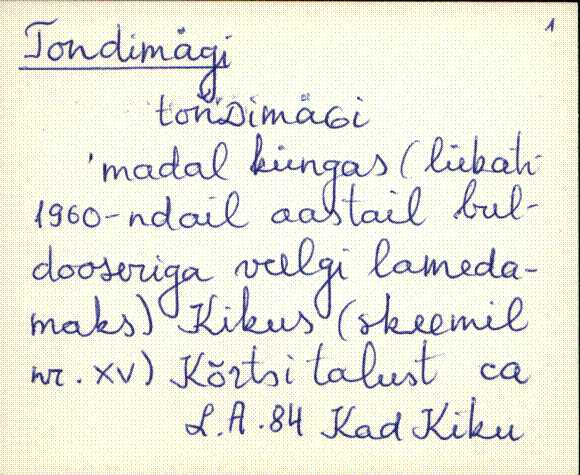 1
Tondimägi
tońDimäGi
'madal küngas (lükati
1960-ndail aastail bul-
dooseriga veelgi lameda-
maks) Kikus (skeemil
nr. XV) Kõrtsi talust ca
L.A. 84 Kad Kiku